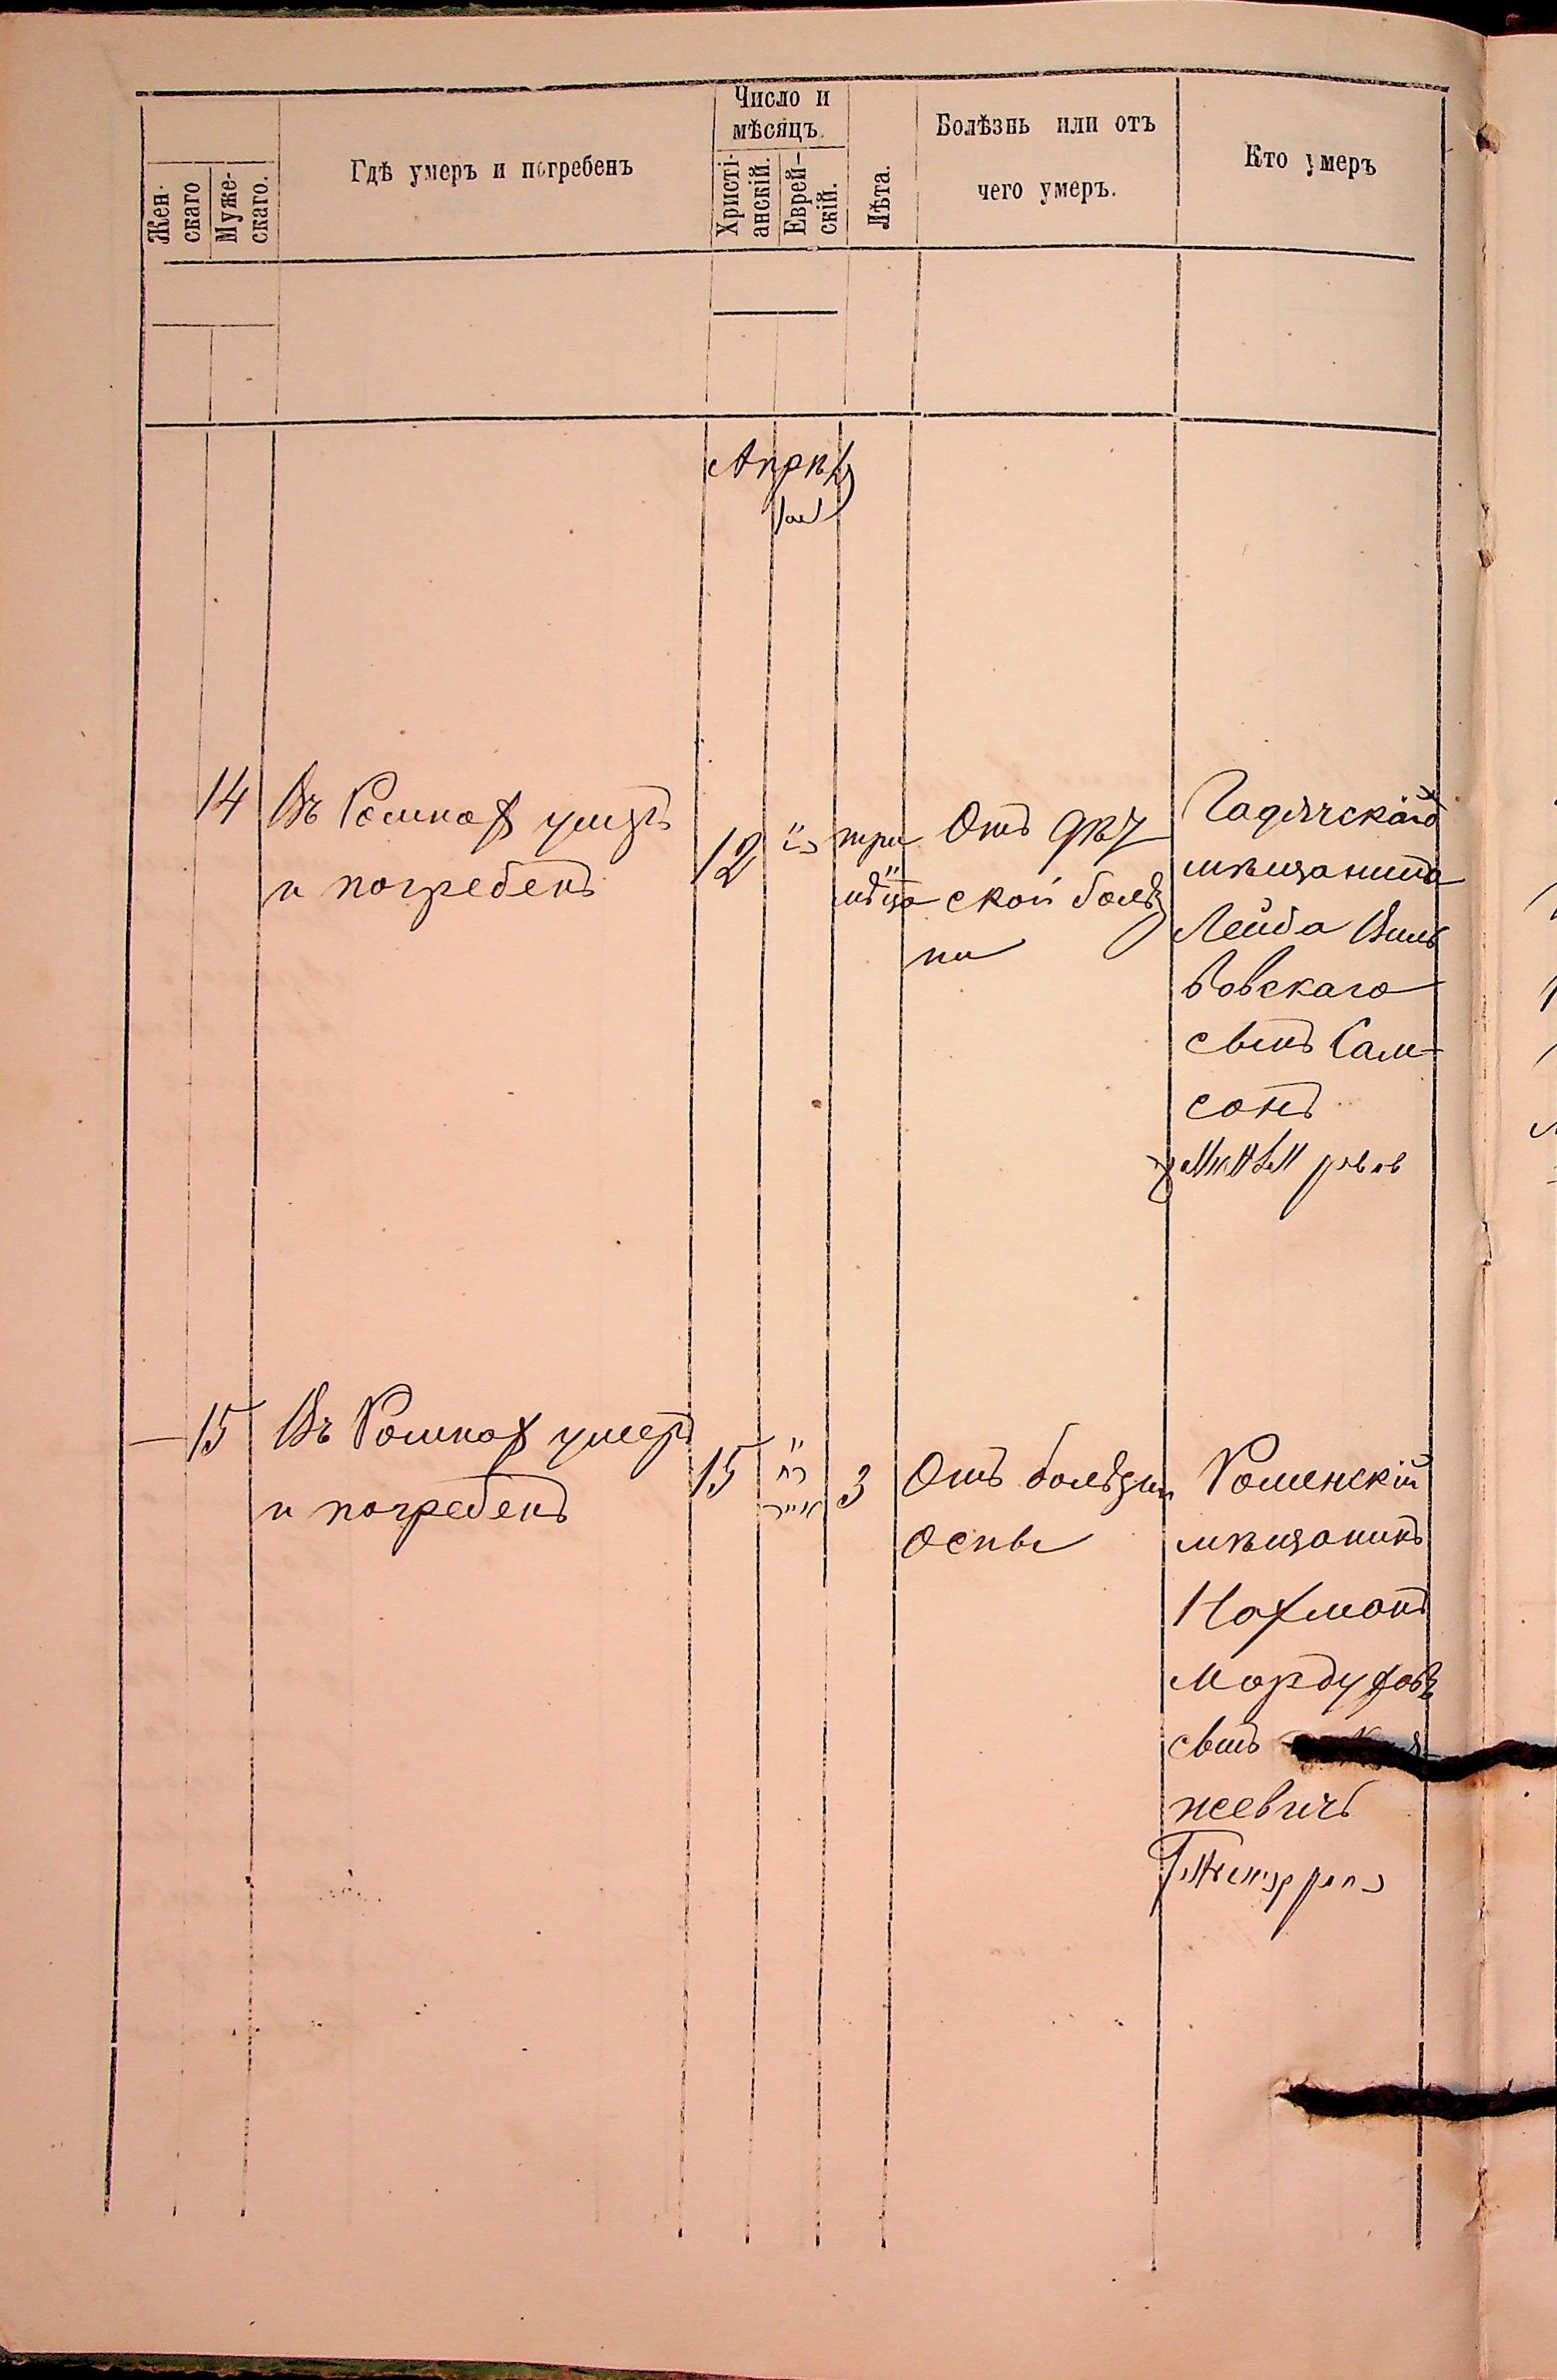 Число и
мѣсяцъ.
Жен-
скаго
Муже-
скаго.
Гдѣ умеръ и погребенъ
Христі-
анскій.
Еврей-
скій.
Лѣта.
Болѣзнь или отъ
чего умеръ.
Кто умеръ
Апрѣ
14
Въ Ромнах умеръ
и погребенъ
12
три
мѣсца
Отъ дѣт
ской болѣз
ни
Гадячскаго
мѣщанина
Лейба
скаго
сынъ Сам-
сонъ
15
Въ Ромнах умеръ
и погребенъ
15
אייר
3
Отъ болѣзни
оспы
Роменскій
мѣщанинъ
Нахманъ
Мордуховъ
сынъ
жевичъ